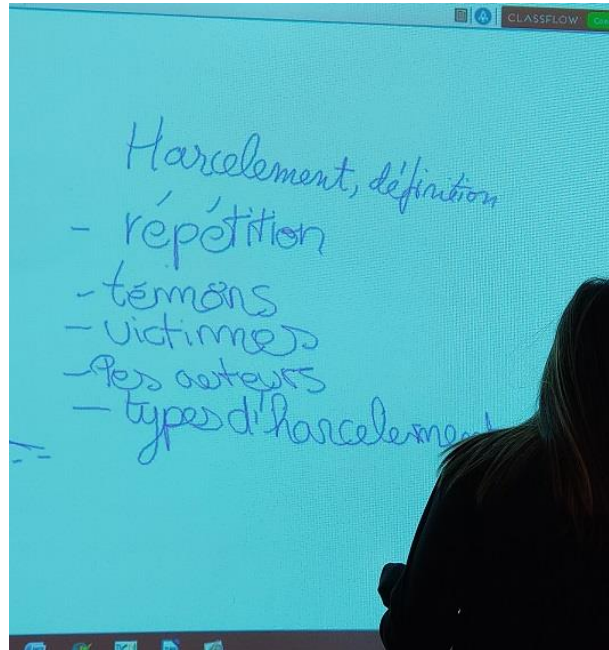 CLASSFLOW
Harcelement, définition
- répétition
- témons
- victimes
- les auteurs
- types d'harcelement